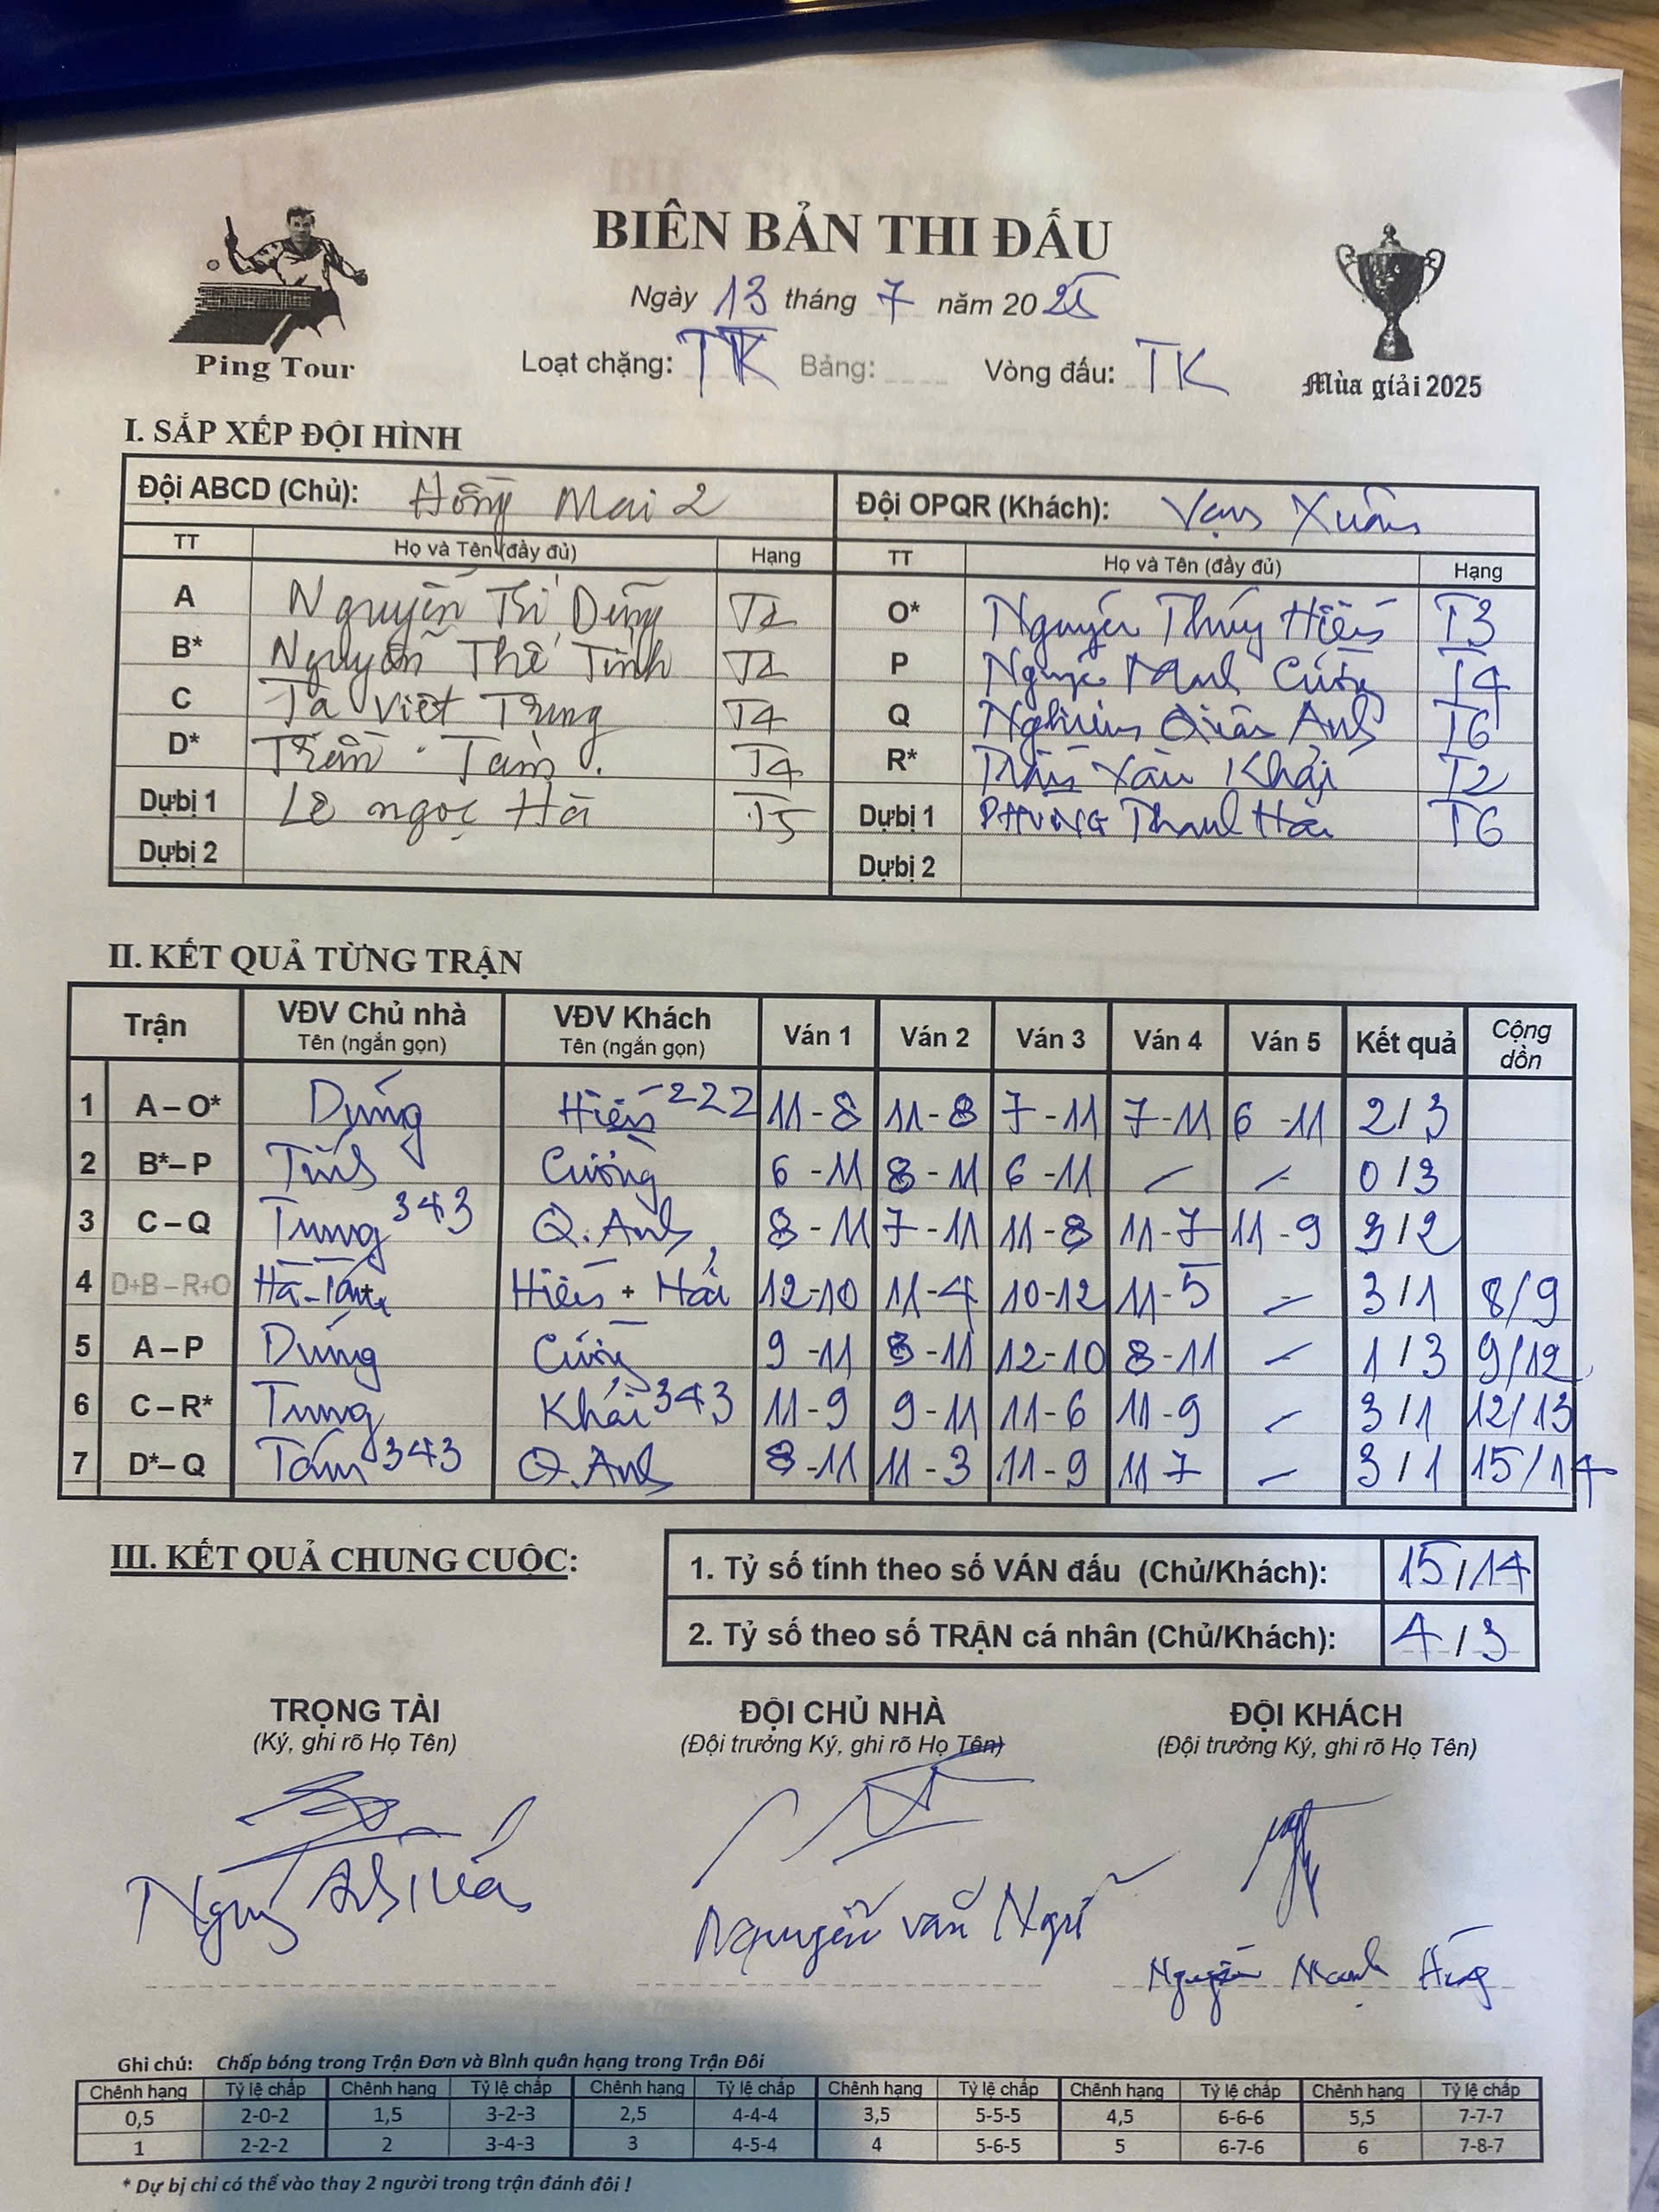 BIÊN BẢN THI ĐẤU
Ngày 13 tháng 7 năm 2025
Ping Tour
Loạt chặng: TK Bảng: Vòng đấu: TK
Mùa giải 2025
I. SẮP XẾP ĐỘI HÌNH
Đội ABCD (Chủ): Hồng Mai 2 Đội OPQR (Khách): Vạn Xuân
TT Họ và Tên (đầy đủ) Hạng TT Họ và Tên (đầy đủ) Hạng
A Nguyễn Trí Dũng T2 O* Nguyễn Thúy Hiền T3
B* Nguyễn Thế Tính T2 P Nguyễn Mạnh Cường T4
C Tạ Việt Trung T4 Q Nghiêm Quân Anh T6
D* Trần Tám T4 R* Trần Xân Khải T2
Dự bị 1 Lê ngọc Hà T5 Dự bị 1 PHƯƠNG Thanh Hải T6
Dự bị 2 Dự bị 2
II. KẾT QUẢ TỪNG TRẬN
Trận VĐV Chủ nhà Tên (ngắn gọn) VĐV Khách Tên (ngắn gọn) Ván 1 Ván 2 Ván 3 Ván 4 Ván 5 Kết quả Cộng dồn
1 A – O* Dũng Hiền 222 11-8 11-8 7-11 7-11 6-11 2/3
2 B* – P Tính Cường 6-11 8-11 6-11 – – 0/3
3 C – Q Trung 343 Q. Anh 8-11 7-11 11-8 11-7 11-9 3/2
4 D+B – R+O Hà- Hiền + Hải 12-10 11-4 10-12 11-5 – 3/1 8/9
5 A – P Dũng Cường 9-11 8-11 12-10 8-11 – 1/3 9/12
6 C – R* Trung Khải 343 11-9 9-11 11-6 11-9 – 3/1 12/13
7 D* – Q Tám 343 Q. Anh 8-11 11-3 11-9 11-7 – 3/1 15/14
III. KẾT QUẢ CHUNG CUỘC:
1. Tỷ số tính theo số VÁN đấu (Chủ/Khách): 15/14
2. Tỷ số theo số TRẬN cá nhân (Chủ/Khách): 4/3
TRỌNG TÀI ĐỘI CHỦ NHÀ ĐỘI KHÁCH
(Ký, ghi rõ Họ Tên) (Đội trưởng Ký, ghi rõ Họ Tên) (Đội trưởng Ký, ghi rõ Họ Tên)
Nguyễn văn Nguyễn Mạnh Hùng
Ghi chú: Chấp bóng trong Trận Đơn và Bình quân hạng trong Trận Đôi
Chênh hạng Tỷ lệ chấp Chênh hạng Tỷ lệ chấp Chênh hạng Tỷ lệ chấp Chênh hạng Tỷ lệ chấp Chênh hạng Tỷ lệ chấp Chênh hạng Tỷ lệ chấp
0,5 2-0-2 1,5 3-2-3 2,5 4-4-4 3,5 5-5-5 4,5 6-6-6 5,5 7-7-7
1 2-2-2 2 3-4-3 3 4-5-4 4 5-6-5 5 6-7-6 6 7-8-7
* Dự bị chỉ có thể vào thay 2 người trong trận đánh đôi !